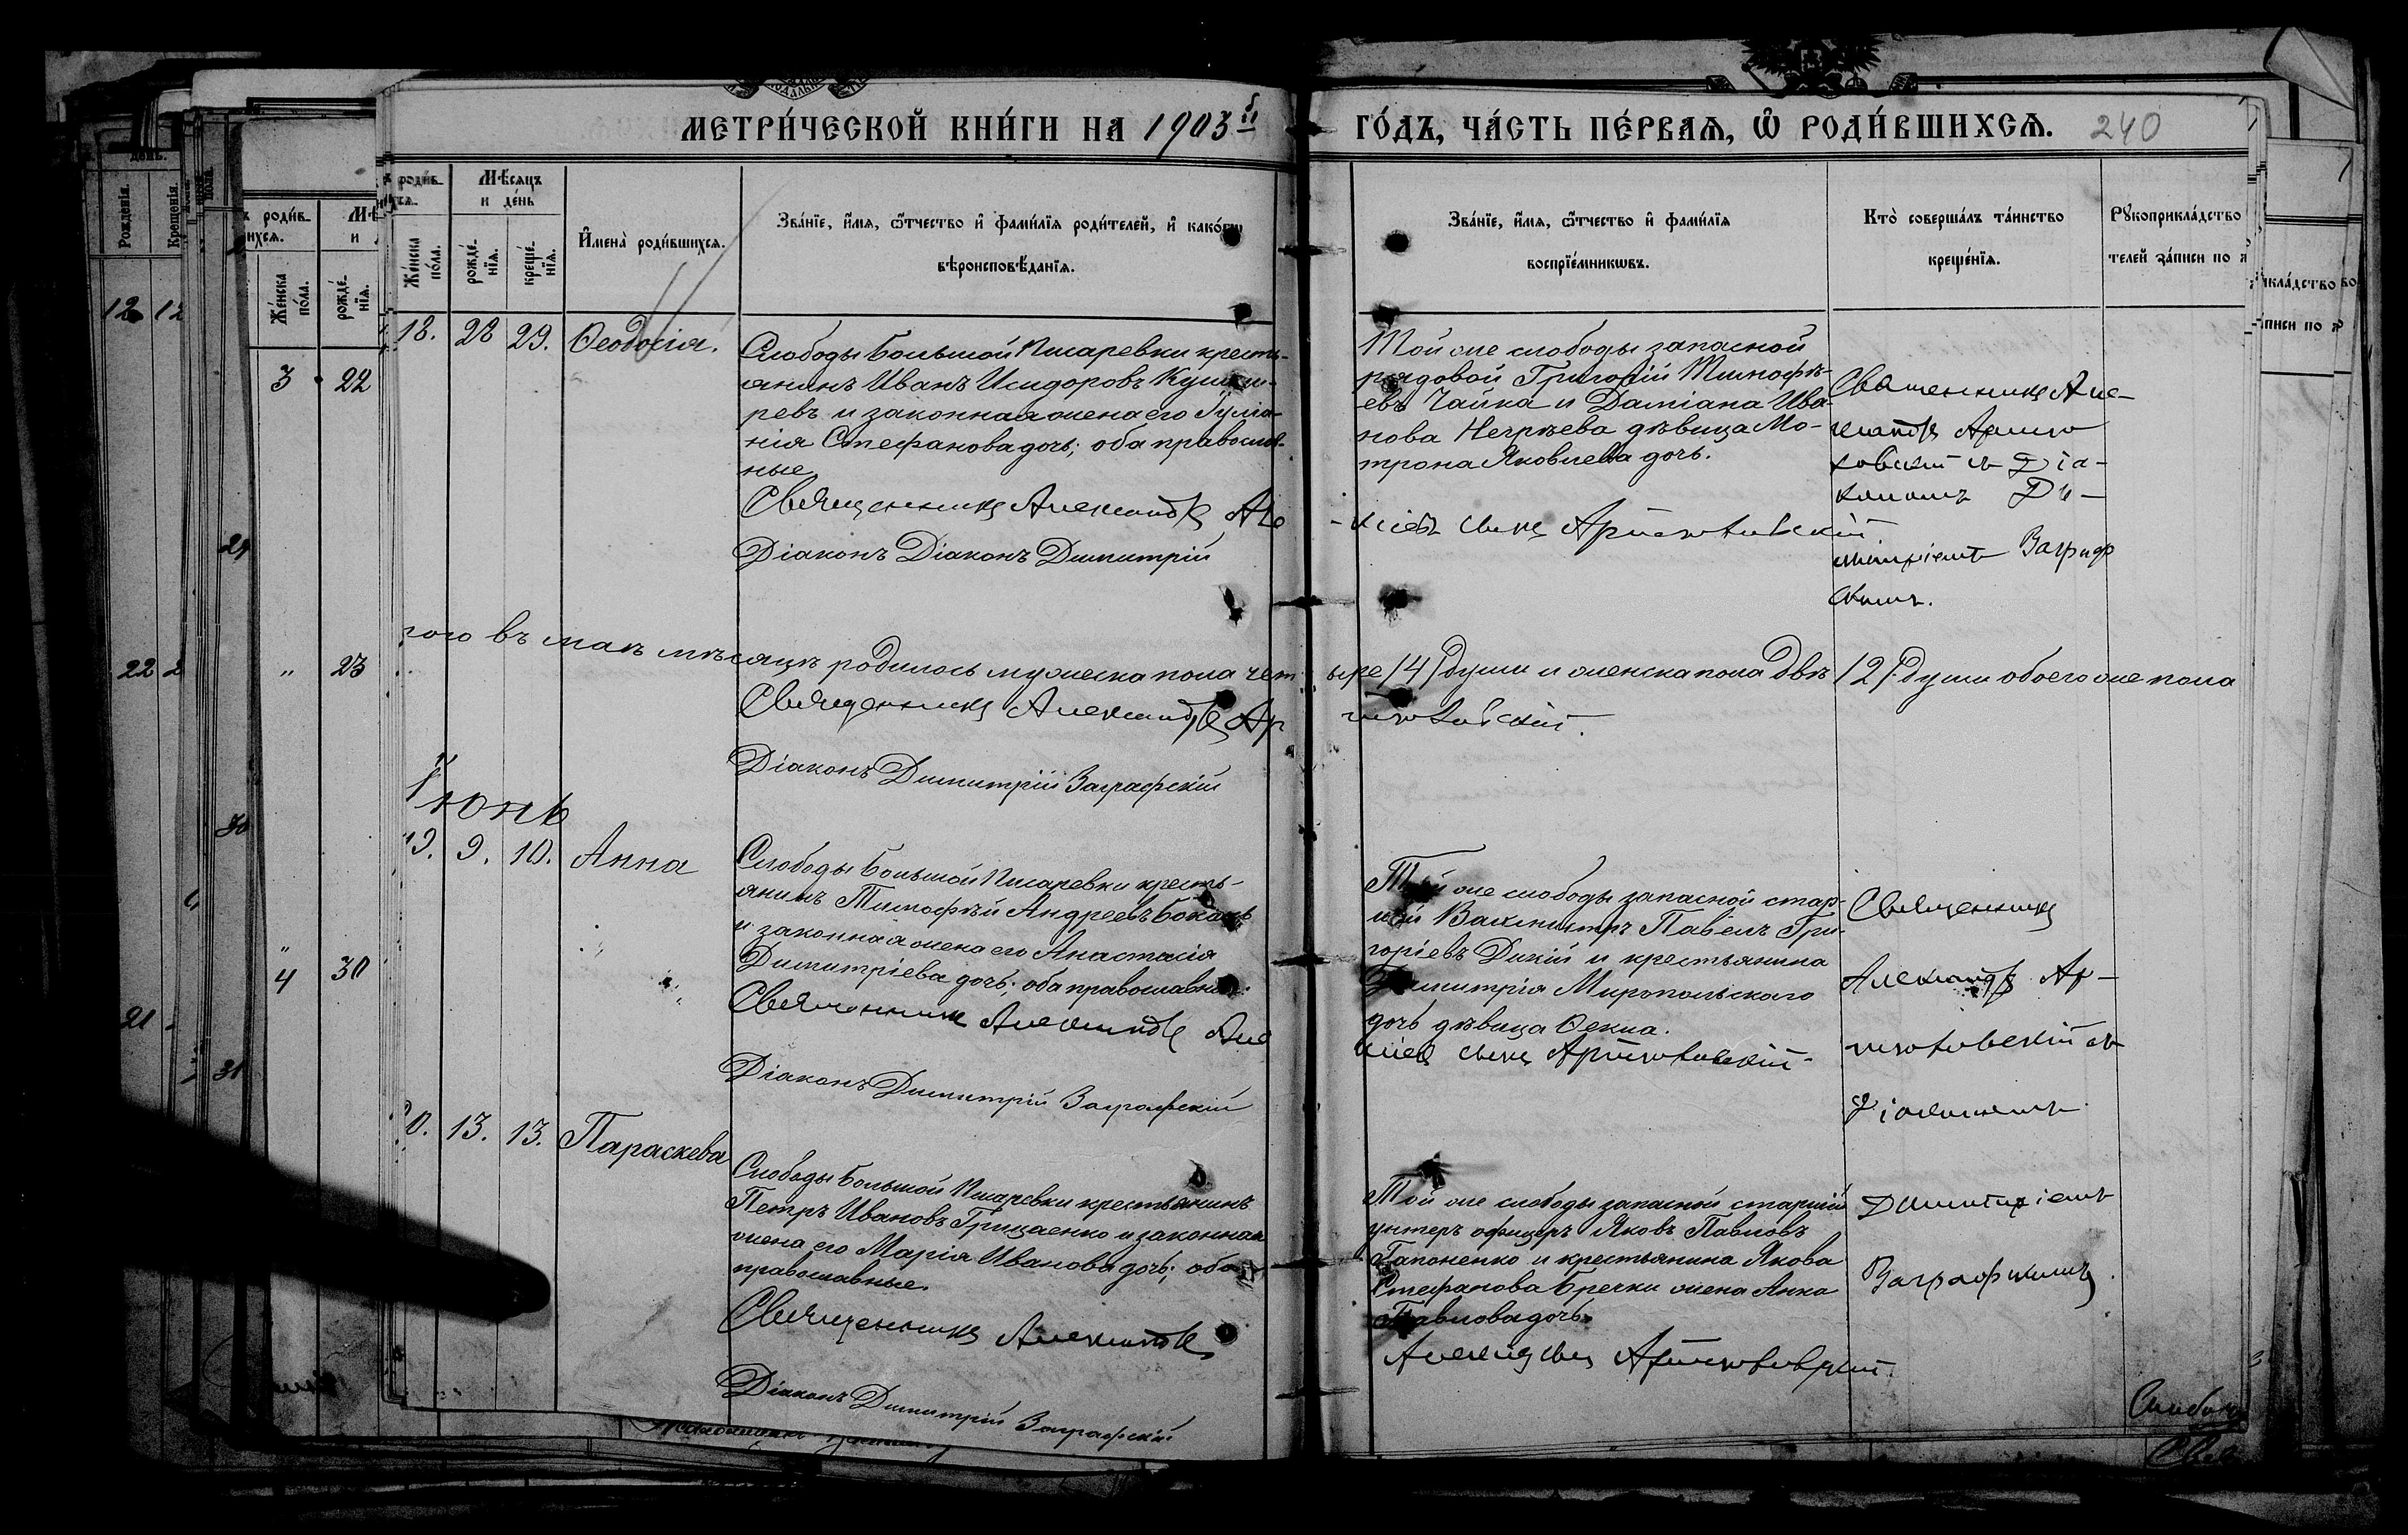 МЕТРИ́ЧЕСКОЙ КНИ́ГИ НА 1903й ГО́ДЪ, ЧА́СТЬ ПЕ́РВАЯ, Ѡ РОДИ́ВШИХСЯ. 240
Мѣсяцъ
и де́нь
Же́нска по́ла.
рожде́нїя.
креще́нїя.
И́мена̀ роди́вшихся.
Зва́нїе, и́мя, ѻ́тчество и̂ фами́лїя роди́телей, и̂ како́гѡ
вѣроисповѣ́данїя.
Зва́нїе, и́мя, ѻ́тчество и̂ фами́лїя
воспрїе́мникѡвъ.
Кто̀ соверша́лъ та́инство
креще́нїя.
Рꙋкоприкла́дство
телей за́писи по
18. 28 29. Ѳеодосія.
Слободы Большой Писаревки кресть-
янинъ Иванъ Исидоровъ
ревъ и законная жена его Іулiа-
нія Стефанова дочь; оба православ-
ные
Священникъ Александръ Але
Діаконъ Діаконъ Димитрій
Той же слободы запасной
рядовой Григорій Тимофѣ-
евъ Чайка и Даміана Ива-
нова Нечрѣева дѣвица Мо-
трона Яковлева дочь.
-ксіевъ сынъ
Священникъ Але-
ксандръ
съ Діа-
кономъ Ди-
митріемъ Заграф
скимъ.
того въ маѣ мѣсяцѣ родилось мужеска пола четыре /4/ души и женска пола двѣ /2/ души обоего же пола
Священникъ Александръ Ар
Діаконъ Димитрій Заграфскій
Іюнь
19. 9. 10. Анна
Слободы Большой Писаревки кресть-
янинъ Тимофѣй Андреевъ
и законная жена его Анастасія
Димитріева дочь; оба православные.
Священникъ Александръ Але
Діаконъ Димитрій Заграфскій
Той же слободы запасной стар-
шій Вахмистръ Павелъ Гри-
горіевъ Дикій и крестьянина
Димитрія Миропольскаго
дочь дѣвица Ѳекла.
ксіевъ сынъ
Священникъ
Александръ Ар-
съ
Діакономъ
Димитріемъ
Заграфскимъ
20. 13. 13. Параскева
Слободы Большой Писаревки крестьянинъ
Петръ Ивановъ Грицаенко и законная
жена его Марія Иванова дочь; оба
православные.
Священникъ Александръ
Діаконъ Димитрій Заграфскій
Той же слободы запасной старшій
унтеръ офицеръ Яковъ Павловъ
Гапоненко и крестьянина Якова
Стефанова Бречки жена Анна
Павлова дочь.
сынъ